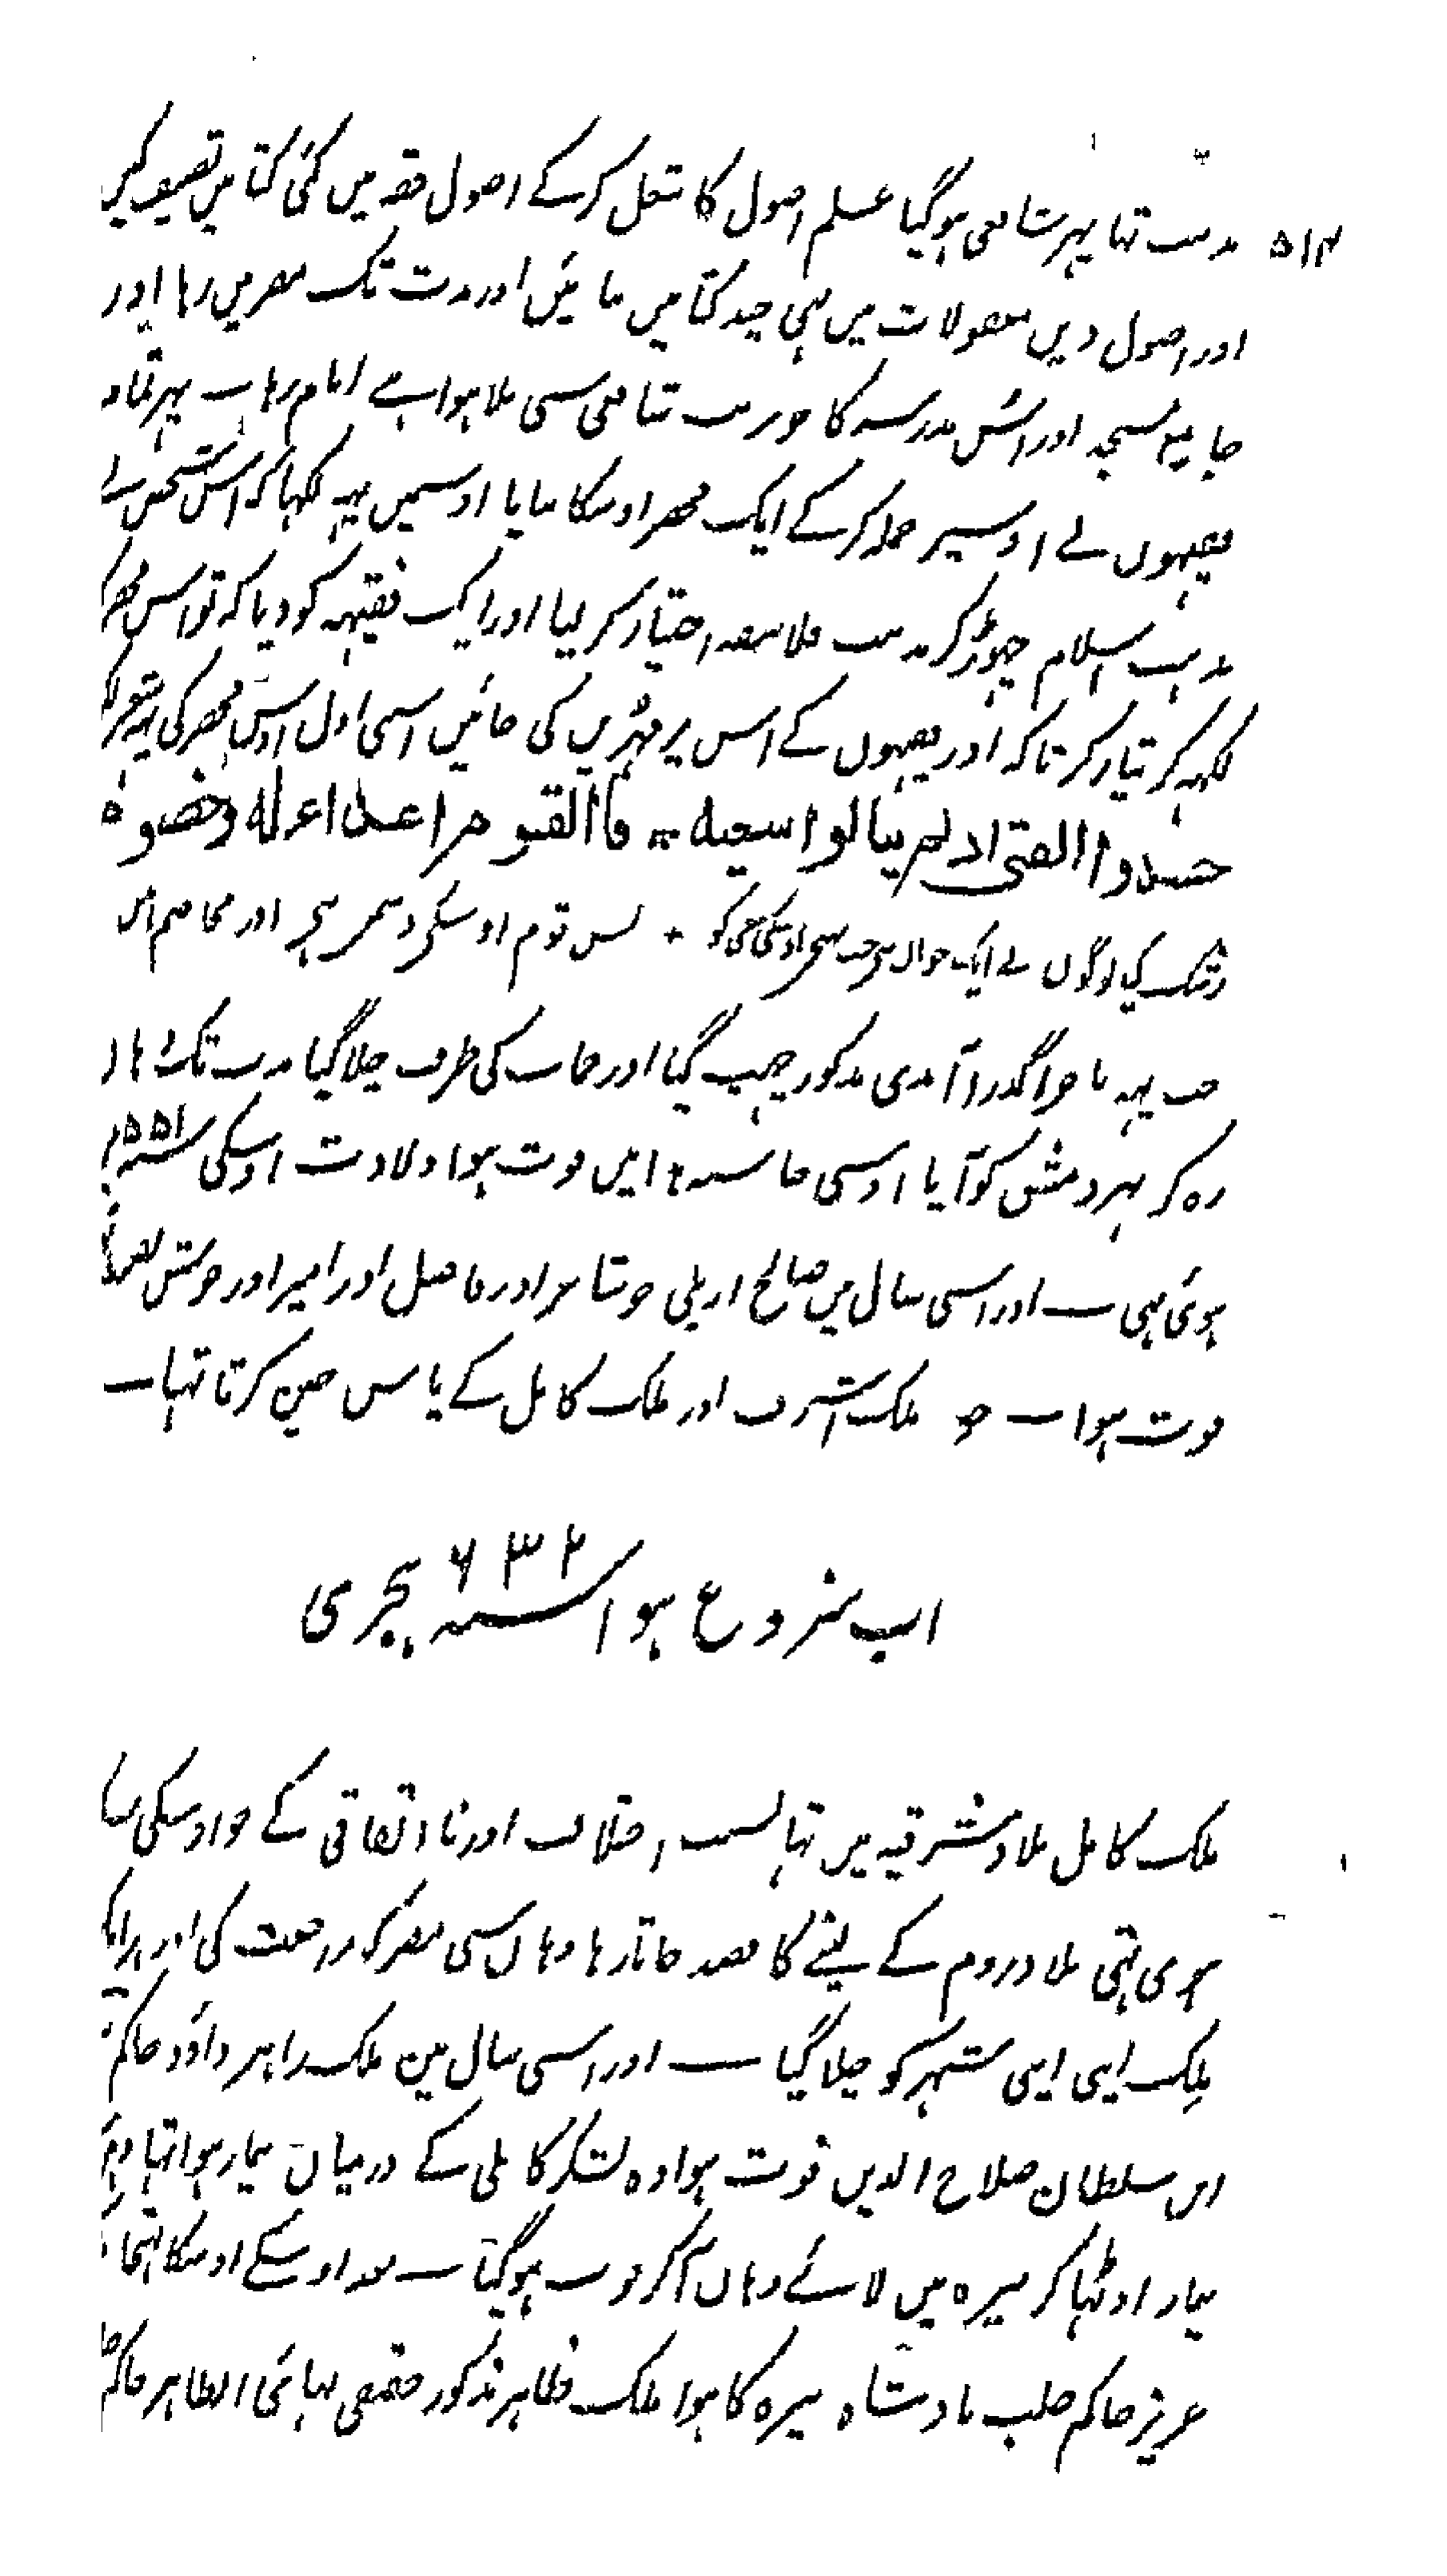 ۵۱۴ مذہب تہا پہر شافعی ہو گیا علم اصول کا شغل کر کے اصول فقہ میں کئی کتابیں تصنیف کیں
اور اصول دیں معقولات میں بہی چند کتابیں بنائیں اور مدت تک مصر میں رہا اور
جامع مسجد اور اُس مدرسہ کا جو تربت شافعی سی ملا ہوا ہے امام رہا — پہر تمام
فقیہوں نے اوسپر حملہ کر کے ایک محضر اوسکا بنایا اوسمیں یہہ لکہا کہ اس شخص نے
مذہب اسلام چہوڑ کر مذہب فلاسفہ اختیار کر لیا اور ایک فقیہہ کو دیا کہ تو اس محضر کو
لکہہ کر تیار کر تا کہ اور فقیہوں کے اس پر مہریں کی جائیں اسی اول اوس محضر کی یہہ شعر لکہا
حسدوا الفتی اذ لم ینالوا سعیه ؞ فالقوم اعداء له وخصوم
رشک کیا لوگوں نے ایک جوان پر جب نہ پہنچی اوسکی سعی کو + پس قوم اوسکی دشمن ہے اور مخاصم ہیں
جب یہہ ماجرا گذرا آمدی مذکور چہپ گیا اور حماۃ کی طرف چلا گیا مدت تک وہاں
رہ کر پہر دمشق کو آیا اوسی جا سنہ ہذا میں فوت ہوا ولادت اوسکی سنہ ۵۵۱ میں
ہوئی تہی — اور اسی سال میں صلاح اربلی جو شاعر اور فاضل اور امیر اور خوش نصیب
فوت ہوا — جو ملک اشرف اور ملک کامل کے پاس چین کرتا تہا —
اب شروع ہوا سنہ ۶۳۲ ہجری
ملک کامل بلاد شرقیہ میں تہا بسبب اختلاف اور نا اتفاقی کے جو اوسکی ساتھ
ہوئی تہی بلاد روم کے لینے کا قصد جاتا رہا وہاں سی مصر کو مراجعت کی اور ہر ایک
ملک اپنی اپنی شہر کو چلا گیا — اور اسی سال میں ملک زاہر داؤد حاکم
ابن سلطان صلاح الدین فوت ہوا وہ لشکر کاملی کے درمیان بیمار ہوا تہا وہ
بیمار اوٹہا کر بیرہ میں لائے وہاں آ کر فوت ہو گیا — بعد اوسکے اوسکا بہتیجا
عزیز حاکم حلب بادشاہ بیرہ کا ہوا ملک ظاہر مذکور حقیقی بہائی الظاہر حاکم